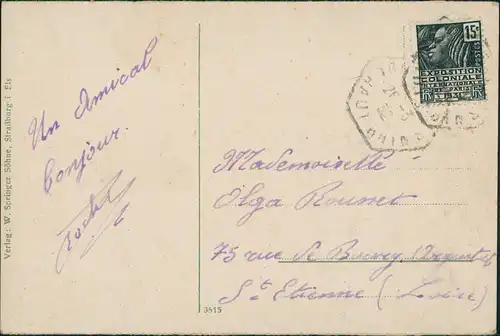 Verlag: W. Springer Söhne, Straßburg i Els
Un Amical
bonjour.
3815
15c
POSTES
EXPOSITION
COLONIALE
INTERNATIONALE
PARIS
1931
RF
Mademoiselle
Olga
75 rue de
St Etienne (Loire)